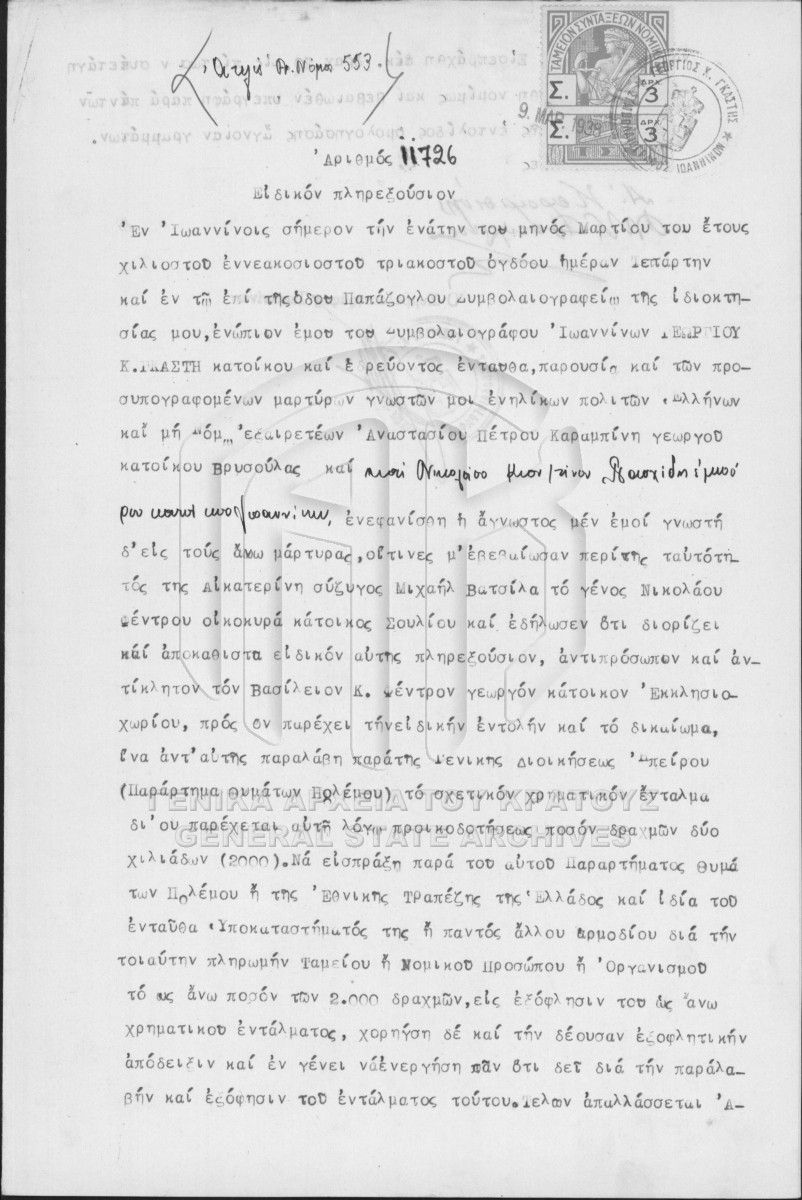 Νόμω 553
ΤΑΜΕΙΟΝ ΣΥΝΤΑΞΕΩΝ ΝΟΜΙΚΩΝ
Σ. ΔΡΧ 3
Σ. ΔΡΧ 3
9. ΜΑΡ. 1938
ΓΕΩΡΓΙΟΣ Κ. ΓΚΑΣΤΗΣ
ΙΩΑΝΝΙΝΩΝ
Ἀριθμός 11726
Εἰδικόν πληρεξούσιον
Ἐν Ἰωαννίνοις σήμερον τήν ἐνάτην του μηνός Μαρτίου του ἔτους
χιλιοστοῦ ἐννεακοσιοστοῦ τριακοστοῦ ὀγδόου ἡμέραν Τετάρτην
καί ἐν τῶ ἐπί τῆς ὁδου Παπάζογλου Συμβολαιογραφείω τῆς ἰδιοκτη-
σίας μου,ἐνώπιον ἐμοῦ του Συμβολαιογράφου Ἰωαννίνων ΓΕΩΡΓΙΟΥ
Κ.ΓΚΑΣΤΗ κατοίκου καί ἑδρεύοντος ἐνταυθα,παρουσία καί τῶν προ-
συπογραφομένων μαρτύρων γνωστῶν μοι ἐνηλίκων πολιτῶν Ἑλλήνων
καί μή Νόμω ἐξαιρετέων Ἀναστασίου Πέτρου Καραμπίνη γεωργοῦ
κατοίκου Βρυσούλας καί Νικολάου
ἐνεφανίσθη ἡ ἄγνωστος μέν ἐμοί γνωστή
δ'εἰς τούς ἄνω μάρτυρας,οἵτινες μ'ἐβεβαίωσαν περίτῆς ταὐτότη
τός της Αἰκατερίνη σύζυγος Μιχαήλ Βατσίλα τό γένος Νικολάου
Φέντρου οἰκοκυρά κάτοικος Σουλίου καί ἐδήλωσεν ὅτι διορίζει
καί ἀποκαθιστα εἰδικόν αὐτῆς πληρεξούσιον, ἀντιπρόσωπον καί ἀν-
τίκλητον τόν Βασίλειον Κ. Φέντρον γεωργόν κάτοικον Ἐκκλησιο-
χωρίου, πρός ὅν παρέχει τήνεἰδικήν ἐντολήν καί τό δικαίωμα,
ἵνα ἀντ'αὐτῆς παραλάβη παράτῆς Γενικῆς Διοικήσεως Ἠπείρου
(Παράρτημα Θυμάτων Πολέμου) τό σχετικόν χρηματικόν ἔνταλμα
δι'οὗ παρέχεται αὐτῆ λόγω προικοδοτήσεως ποσόν δραχμῶν δύο
χιλιάδων (2000).Νά εἰσπράξη παρά του αὐτοῦ Παραρτήματος Θυμά
των Πολέμου ἤ τῆς Ἐθνικῆς Τραπέζης τῆς Ἑλλάδος καί ἰδία τοῦ
ἐνταῦθα Ὑποκαταστήματός της ἤ παντός ἄλλου ἁρμοδίου διά τήν
τοιαύτην πληρωμήν Ταμείου ἤ Νομικοῦ Προσώπου ἤ Ὀργανισμοῦ
τό ὡς ἄνω ποσόν τῶν 2.000 δραχμῶν,εἰς ἐξόφλησιν του ὡς ἄνω
χρηματικου ἐντάλματος, χορηγήση δέ καί τήν δέουσαν ἐξοφλητικήν
ἀπόδειξιν καί ἐν γένει νάἐνεργήση πᾶν ὅτι δεῖ διά τήν παράλα-
βήν καί ἐξόφησιν τοῦ ἐντάλματος τούτου.Τελῶν ἀπαλλάσσεται Ἀ-
ΓΕΝΙΚΑ ΑΡΧΕΙΑ ΤΟΥ ΚΡΑΤΟΥΣ
GENERAL STATE ARCHIVES